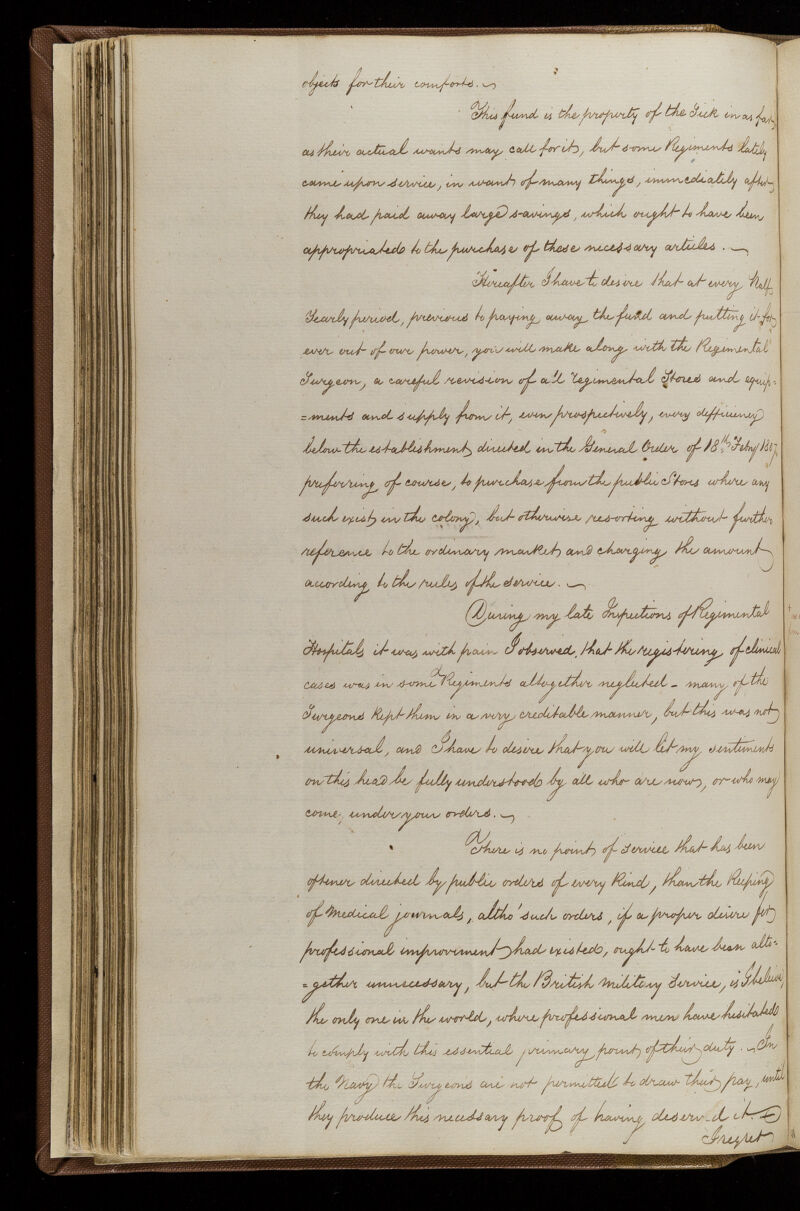 objects for their comforts.
This fund is the property of the Sick in as far
as their actual wants may call for it, but some Regiments lately
came upon service, in want of many things, immediately after
they had paid away large savings, which ought to have been
appropriated to the purchase of these necessary articles.
Hereafter I have to desire that at every Half
Yearly period, previous to paying away the fund and putting it for
ever out of our power, you will make along with the Regimental
Surgeon, a careful revision of all regimental Stores and equip=
=ments and supply from it, even prospectively, every defficiency
below the establishment directed in the General Order of 18th Febry
preferring of course, to purchase from the public Stores where any
such exist in the colony, but otherwise resorting without further
reference to the ordinary market and charging the amount
according to the rules of the service.
During my late Inspections of Regimental
Hospitals it was with pain I observed, that the registering of clinical
cases was in some Regiments altogether neglected - many of the
Surgeons kept them in a very creditable manner, but this was not
universal, and I have to desire that you will let my sentiments
on this head be fully understood by all who are now, or who may
come, under your orders.
There is no point of service that has been
oftener directed by public orders of every kind, than the keeping
of Medical journals, altho' such orders, if a proper desire for
professional improvement had existed, ought to have been alto=
=gether unnecessary, but the British Military Service, is I believe,
the only one in the world, where professional men have hesitated
to comply with this essential primary point of their duty. In
the Navy the Surgeons are not permitted to draw their pay, until
they produce this necessary proof of having deserv_d it
I regret